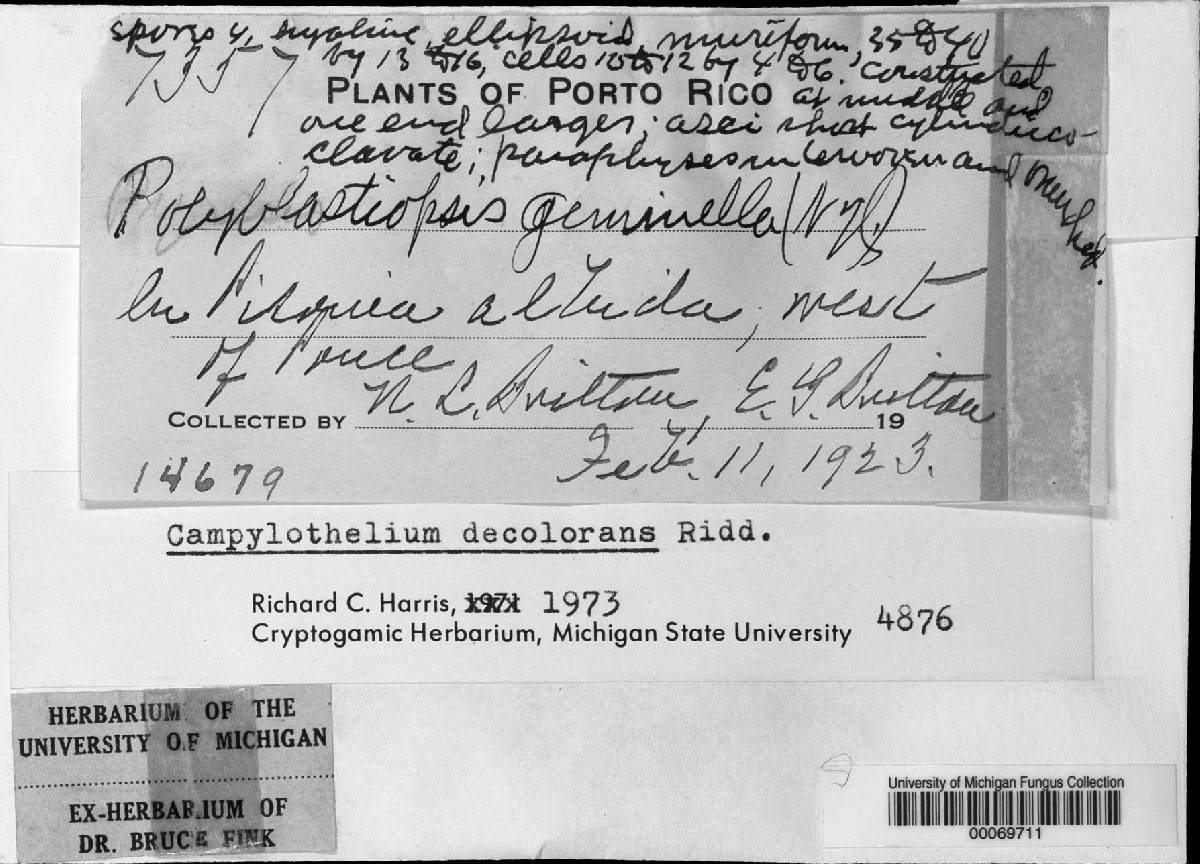 spores 4, hyaline, ellipsoid, muriform, 35 to 40
7357
by 13 to 16, cells 10 to 12 by 4 to 6. Constricted
PLANTS OF PORTO RICO
at middle and
one end larger; asci short cylindrico-
clavate; paraphyses interwoven and branched.
Polyblastiopsis geminella (Nyl.)
On Pisonia albida, west
of Ponce
COLLECTED BY N. L. Britton, E. G. Britton 19
Feb. 11, 1923.
14679
Campylothelium decolorans Ridd.
Richard C. Harris, 1971 1973
Cryptogamic Herbarium, Michigan State University
4876
HERBARIUM OF THE
UNIVERSITY OF MICHIGAN
EX-HERBARIUM OF
DR. BRUCE FINK
University of Michigan Fungus Collection
00069711